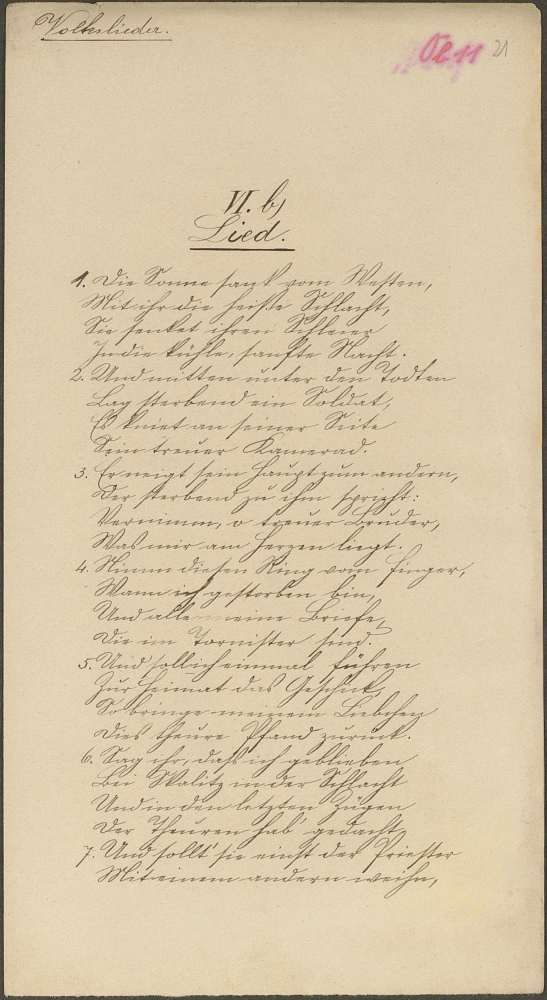 Volkslieder.
Öl 11
21
VI. b)
Lied.
1. Die Sonne sank vom Westen,
Mit ihr die heiße Schlacht,
Sie senket ihren Schleier
In die kühle, sanfte Nacht.
2. Und mitten unter den Todten
Lag sterbend ein Soldat,
Es kniet an seiner Seite
Sein treuer Kamerad.
3. Er neigt sein Haupt zum andern,
Der sterbend zu ihm spricht:
Vernimm, o treuer Bruder,
Was mir am Herzen liegt.
4. Nimm diesen Ring vom Finger,
Wann ich gestorben bin,
Und alle meine Briefe,
Die im Tornister sind.
5. Und soll dich einmal führen
Zur Heimat das Geschick,
So bringe meinem Liebchen
Dies theure Pfand zurück.
6. Sag ihr, daß ich geblieben
Bei Skalitz in der Schlacht
Und in den letzten Zügen
Der Theuren hab' gedacht.
7. Und sollt' sie einst der Priester
Mit einem andern weihn,